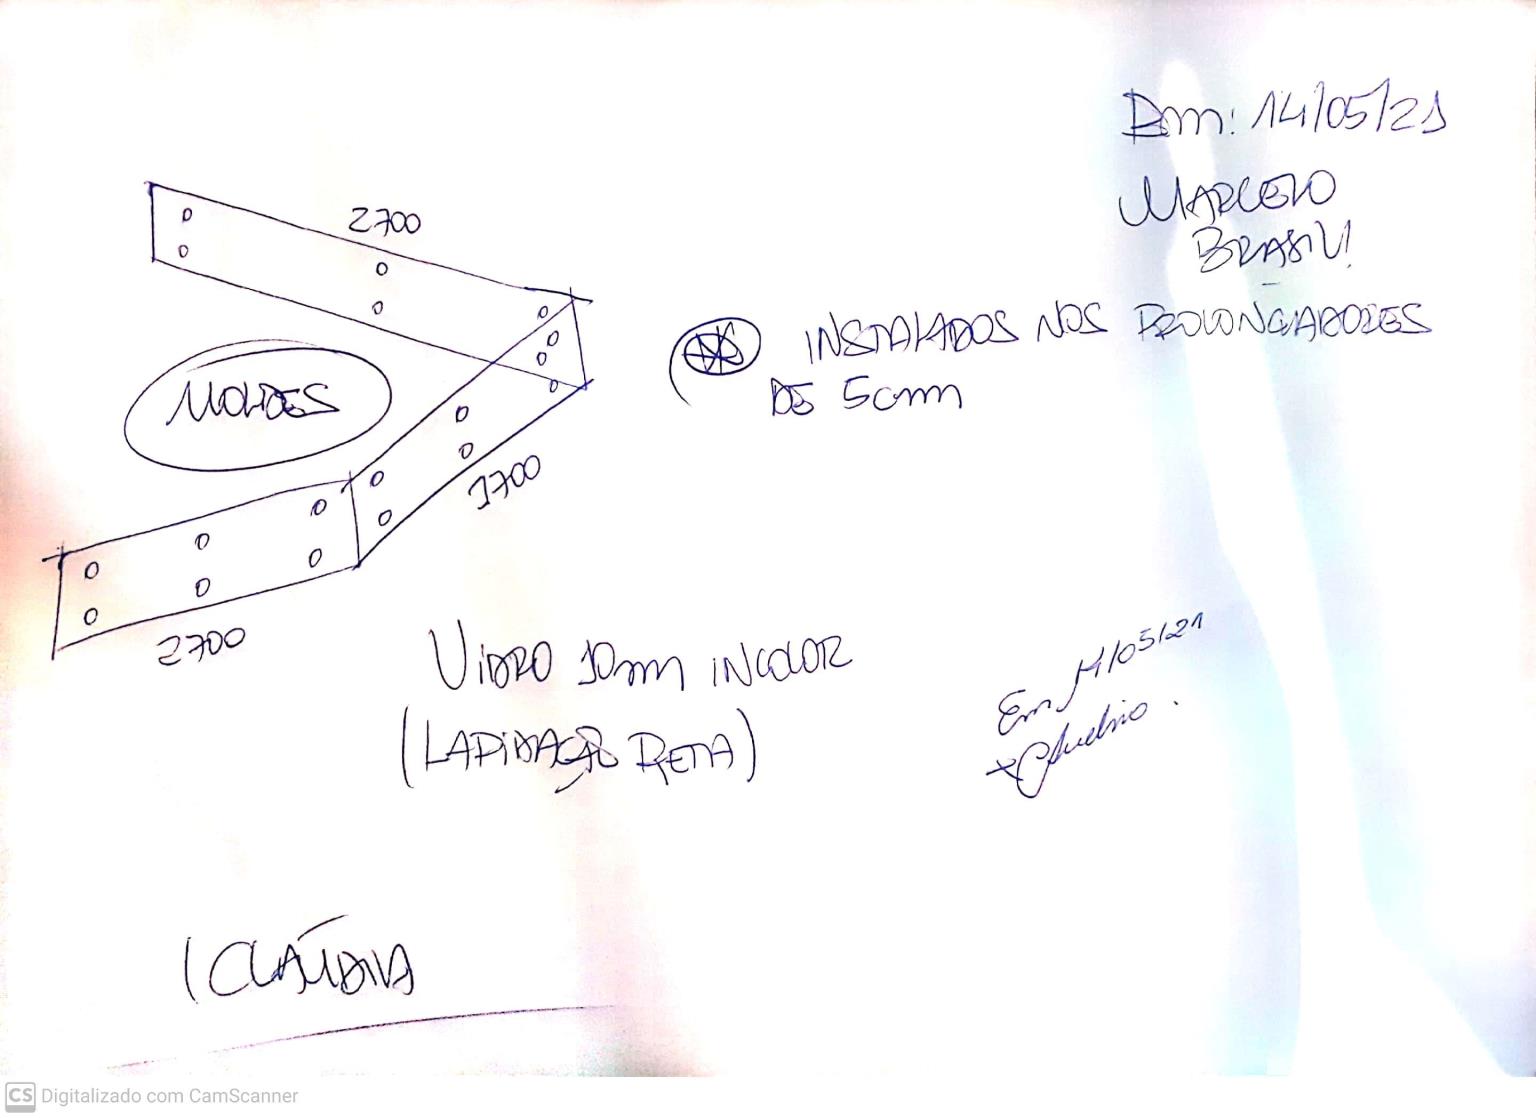 14/05/21
MARCELO
BRASIL!
2700
INSTALADOS NOS PROLONGADORES
DE 5cm
MOLDES
1700
2700
VIDRO 10mm INCOLOR
(LAPIDAÇÃO RETA)
Em 14/05/21
CLÁUDIA
CS Digitalizado com CamScanner